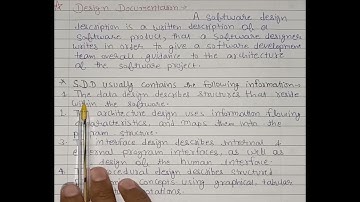 * Design Documentation →
A software design
description is a written description of a
software product, that a software designer
writes in order to give a software development
team overall guidance to the architecture
of the software project.
* S.D.D usually contains the following information →
1. The data design describes structures that reside
within the software.
2. The architecture design uses information flowing
characteristics, and maps them into the
program structure.
3. The interface design describes internal &
external program interfaces, as well as
design of the human interface.
4. procedural design describes structured
concepts using graphical, tabular
notations.